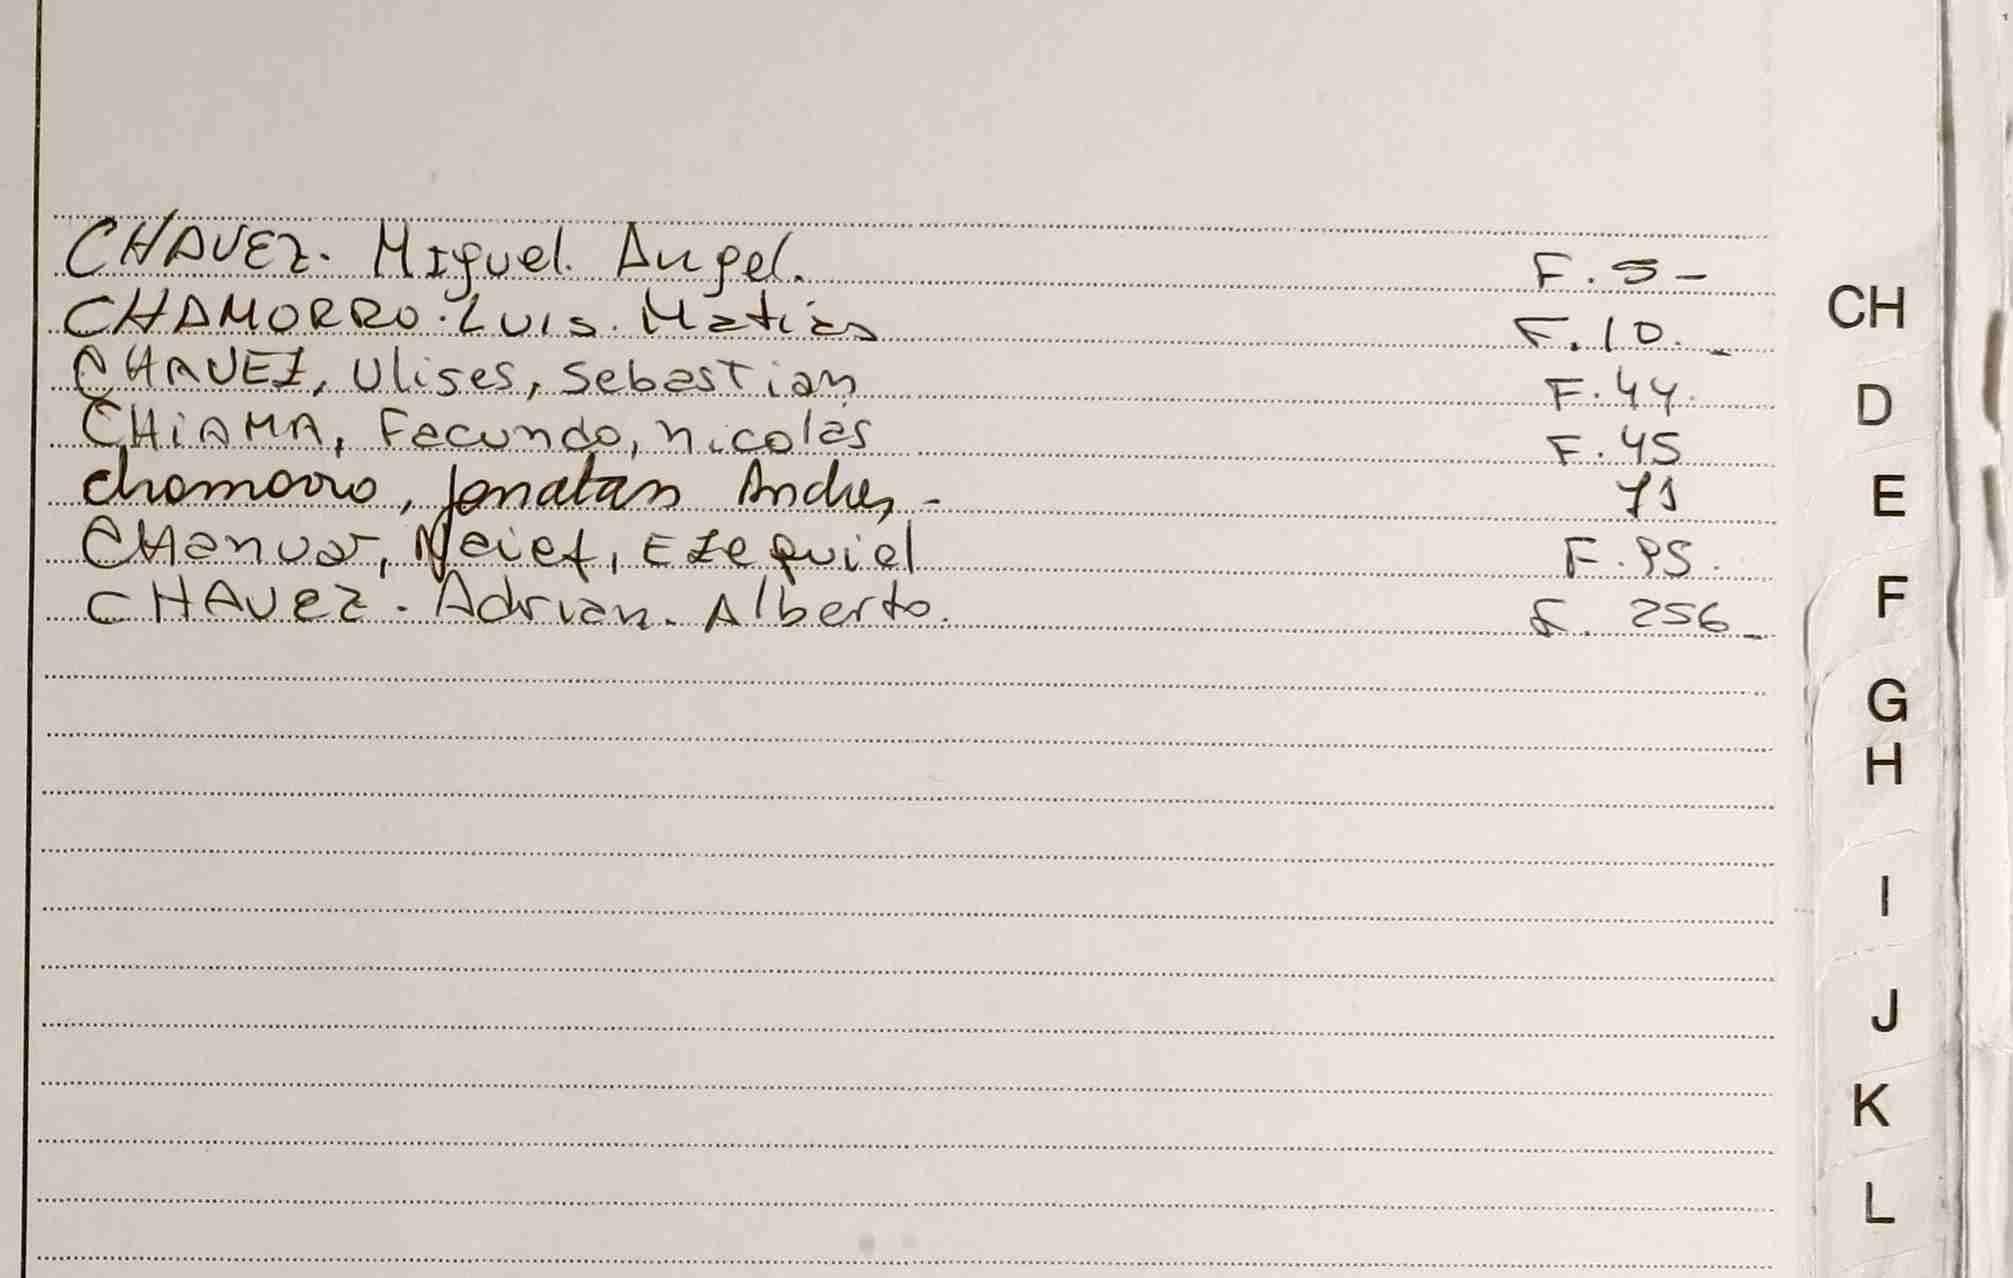 CHAVEZ. Miguel. Angel. F. 5-
CHAMORRO. Luis. Matias F. 10. -
CHAVEZ, Ulises, Sebastian F. 44.
CHiAMA, Facundo, nicolás F. 45
chamorro, Jonatan Andres - 71
CHanuar, Neief, EZequiel F. 95.
CHAvez. Adrian. Alberto. F. 256_
CH
D
E
F
G
H
I
J
K
L